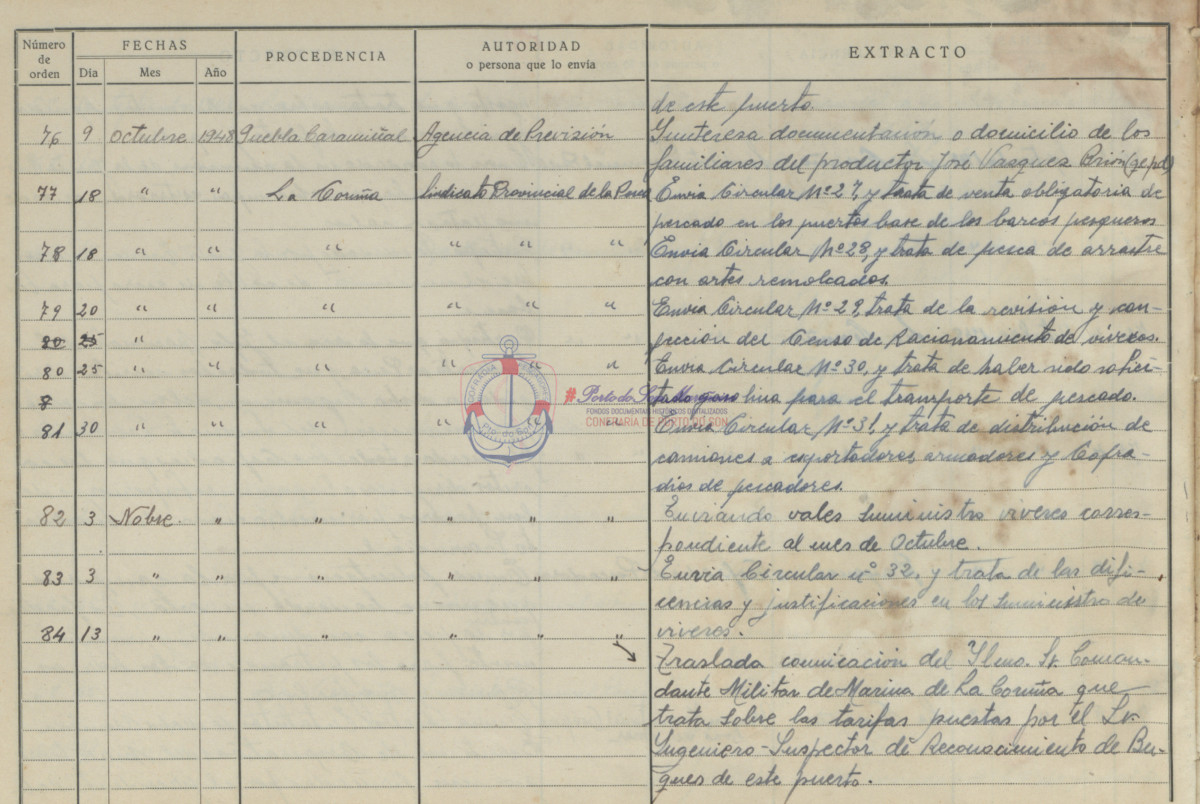 Número de orden FECHAS PROCEDENCIA AUTORIDAD EXTRACTO
Día Mes Año o persona que lo envía
de este puerto.
76 9 Octubre 1948 Puebla Caramiñal Agencia de Previsión Yinteresa documentación o domicilio de los
familiares del productor José Vasquez Brión
77 18 " " La Coruña Sindicato Provincial de la Pesca Envia Circular Nº 27, y trata de venta obligatoria de
pescado en los puertos base de los barcos pesqueros
78 18 " " " " " " Envia Circular Nº 28, y trata de pesca de arrastre
con artes remolcados.
79 20 " " " " " " Envia Circular Nº 29, trata de la revisión y con-
fección del Censo de Racionamiento de víveres.
80 25 "
80 25 " " " " " " Envia Circular Nº 30, y trata de haber sido solici-
tado gasolina para el transporte de pescado.
8
#PortodoSon
FONDOS DOCUMENTAIS HISTÓRICOS DIXITALIZADOS
CONFRARIA DE PORTO DO SON
COFRADIA PESCADORES
Pto. do Son
81 30 " " " " " " Envia Circular Nº 31 y trata de distribución de
camiones a exportadores armadores y Cofra-
dias de pescadores.
82 3 Nobre. " " " " " Enviando vales suministro viveres corres-
pondiente al mes de Octubre.
83 3 " " " " " " Envia Circular nº 32, y trata de las difi-
cencias y justificaciones en los suministro de
viveres.
84 13 " " " " " "
Traslada comunicación del Ilmo. Sr. Coman-
dante Militar de Marina de La Coruña que
trata sobre las tarifas puestas por el Sr.
Ingeniero-Inspector de Reconocimiento de Bu-
ques de este puerto.